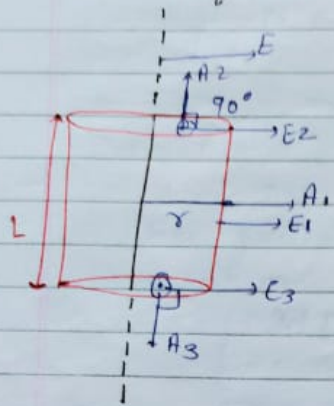 E
A2
90°
E2
L
A1
r
E1
E3
A3